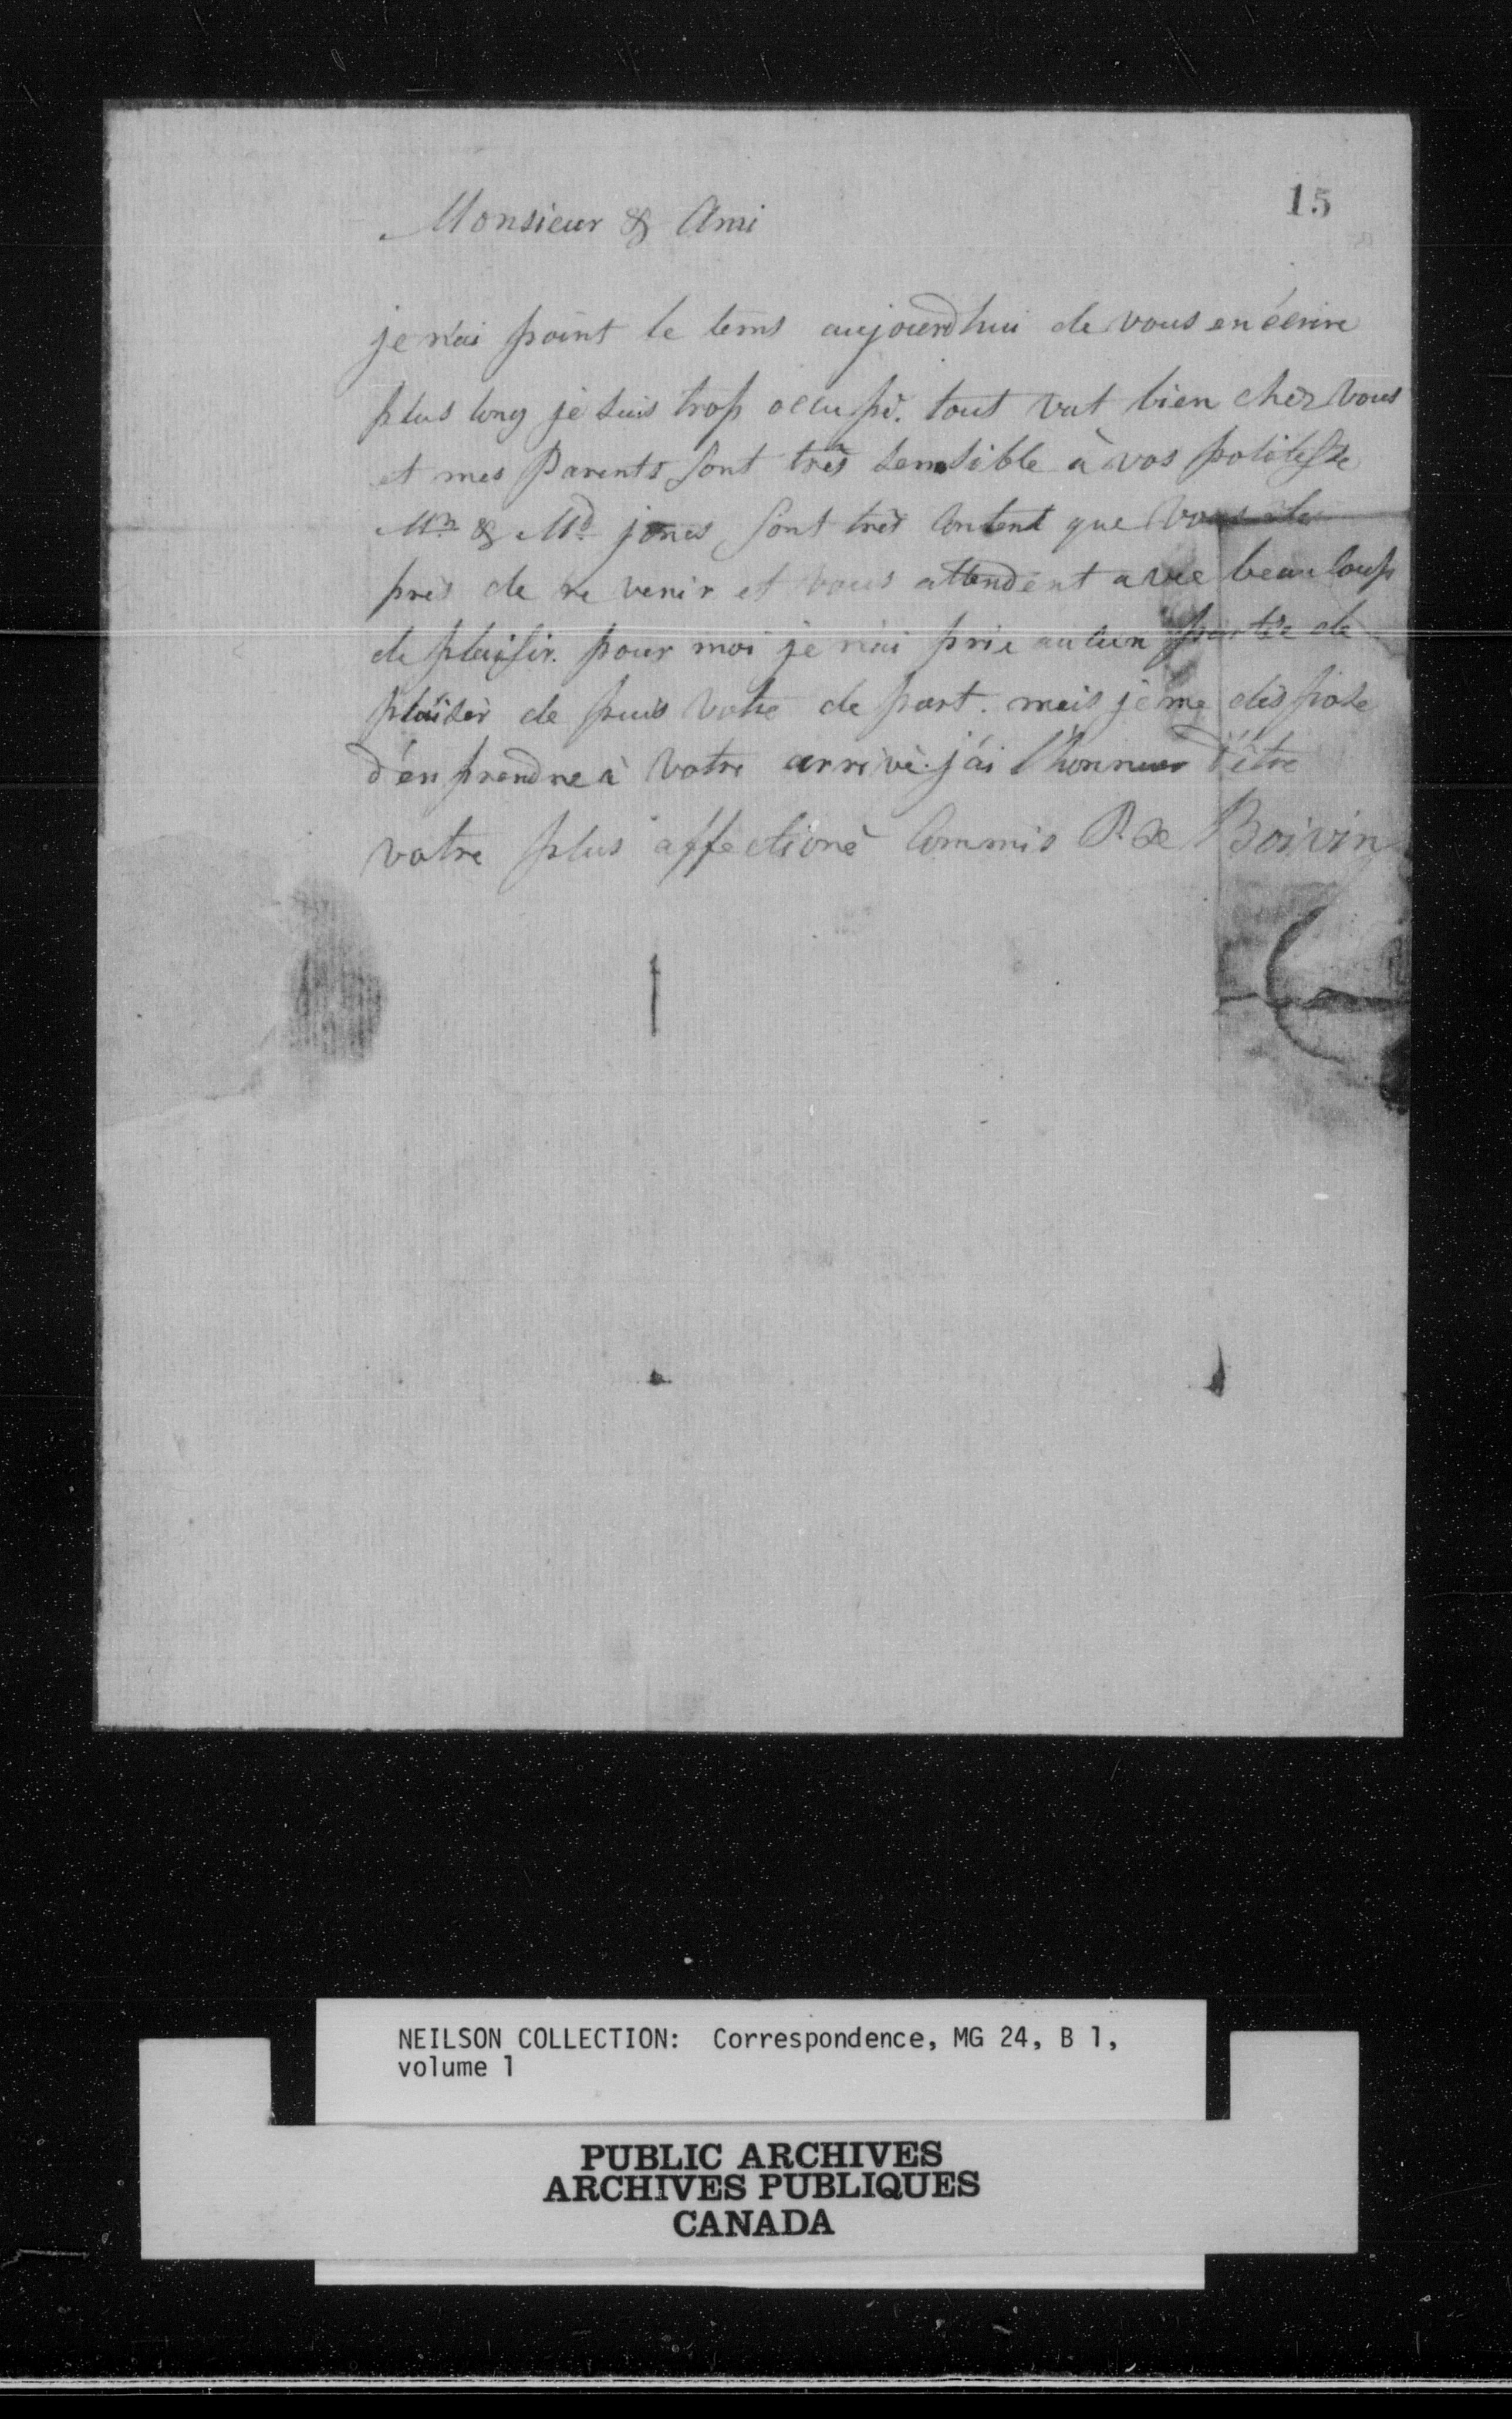 15
Monsieur & Ami
je n'ai point le tems aujourdhui de vous en écrire
plus long je suis trop occupé. tout vat bien chez vous
et mes Parents sont très sensible à vos politesse
Mr. & Md. jones sont très content que vous
près de re venir et vous attendent avec beaucoup
de plaisir. pour moi je n'ai prie aucun partie de
plaisir de puis votre de part. mais je me dispose
d'en prendre à votre arrivé. j'ai l'honneur d'être
votre plus affectioné Commis Boivin
NEILSON COLLECTION: Correspondence, MG 24, B 1,
volume 1
PUBLIC ARCHIVES
ARCHIVES PUBLIQUES
CANADA